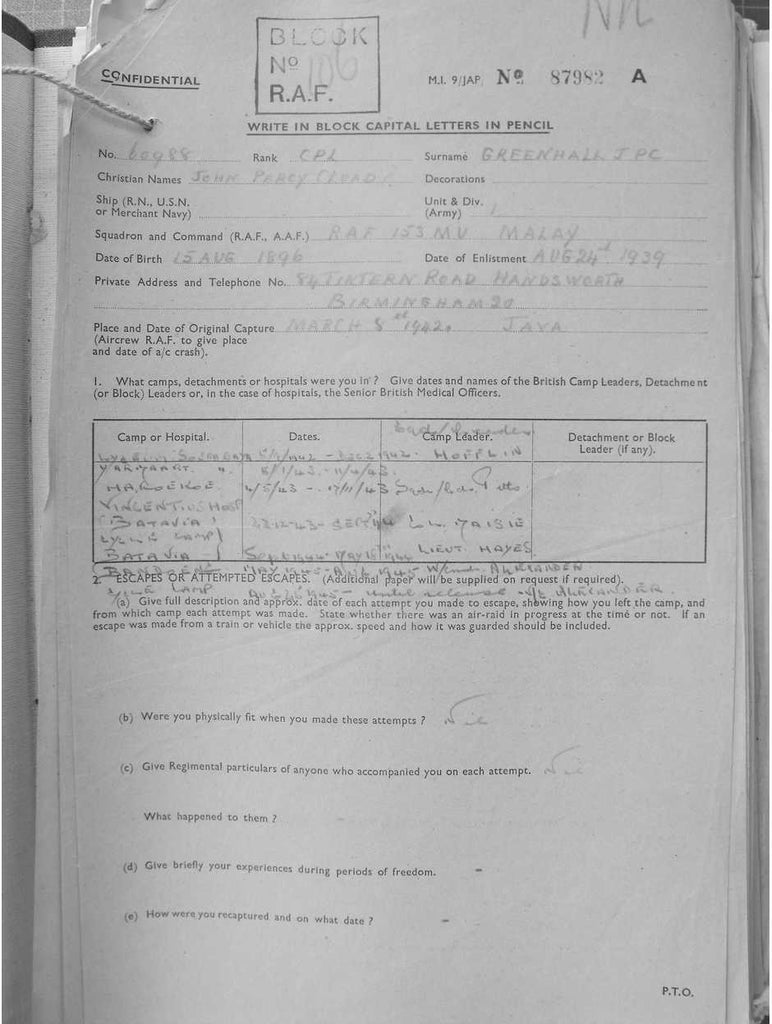 NIL
BLOCK
Nº 106
R.A.F.
CONFIDENTIAL
M.I. 9/JAP Nº 87982 A
WRITE IN BLOCK CAPITAL LETTERS IN PENCIL
No. 60988 Rank CPL Surname GREENHALL J PC
Christian Names JOHN PERCY Decorations
Ship (R.N., U.S.N. or Merchant Navy) Unit & Div. (Army)
Squadron and Command (R.A.F., A.A.F.) RAF 153 MU MALAY
Date of Birth 15 AUG 1896 Date of Enlistment AUG 24th 1939
Private Address and Telephone No. 84 TINTERN ROAD HANDSWORTH
BIRMINGHAM 20
Place and Date of Original Capture MARCH 8 1942. JAVA
(Aircrew R.A.F. to give place
and date of a/c crash).
1. What camps, detachments or hospitals were you in? Give dates and names of the British Camp Leaders, Detachment
(or Block) Leaders or, in the case of hospitals, the Senior British Medical Officers.
Camp or Hospital. Dates. Camp Leader. Detachment or Block
Leader (if any).
LYCEUM 1942 - 1942.
YAARMARKT. " 8/1/43 - 11/4/43.
HAROEKOE 4/5/43 - 17/11/43
VINCENTIUS HOSP
(BATAVIA) -12-43 -
LYCEE CAMP
BATAVIA LIEUT. HAYES
ALEXANDER
2. ESCAPES OR ATTEMPTED ESCAPES. (Additional paper will be supplied on request if required).
CAMP - until release - ALEXANDER.
(a) Give full description and approx. date of each attempt you made to escape, showing how you left the camp, and
from which camp each attempt was made. State whether there was an air-raid in progress at the time or not. If an
escape was made from a train or vehicle the approx. speed and how it was guarded should be included.
(b) Were you physically fit when you made these attempts? Nil
(c) Give Regimental particulars of anyone who accompanied you on each attempt. Nil
What happened to them?
(d) Give briefly your experiences during periods of freedom. -
(e) How were you recaptured and on what date? -
P.T.O.